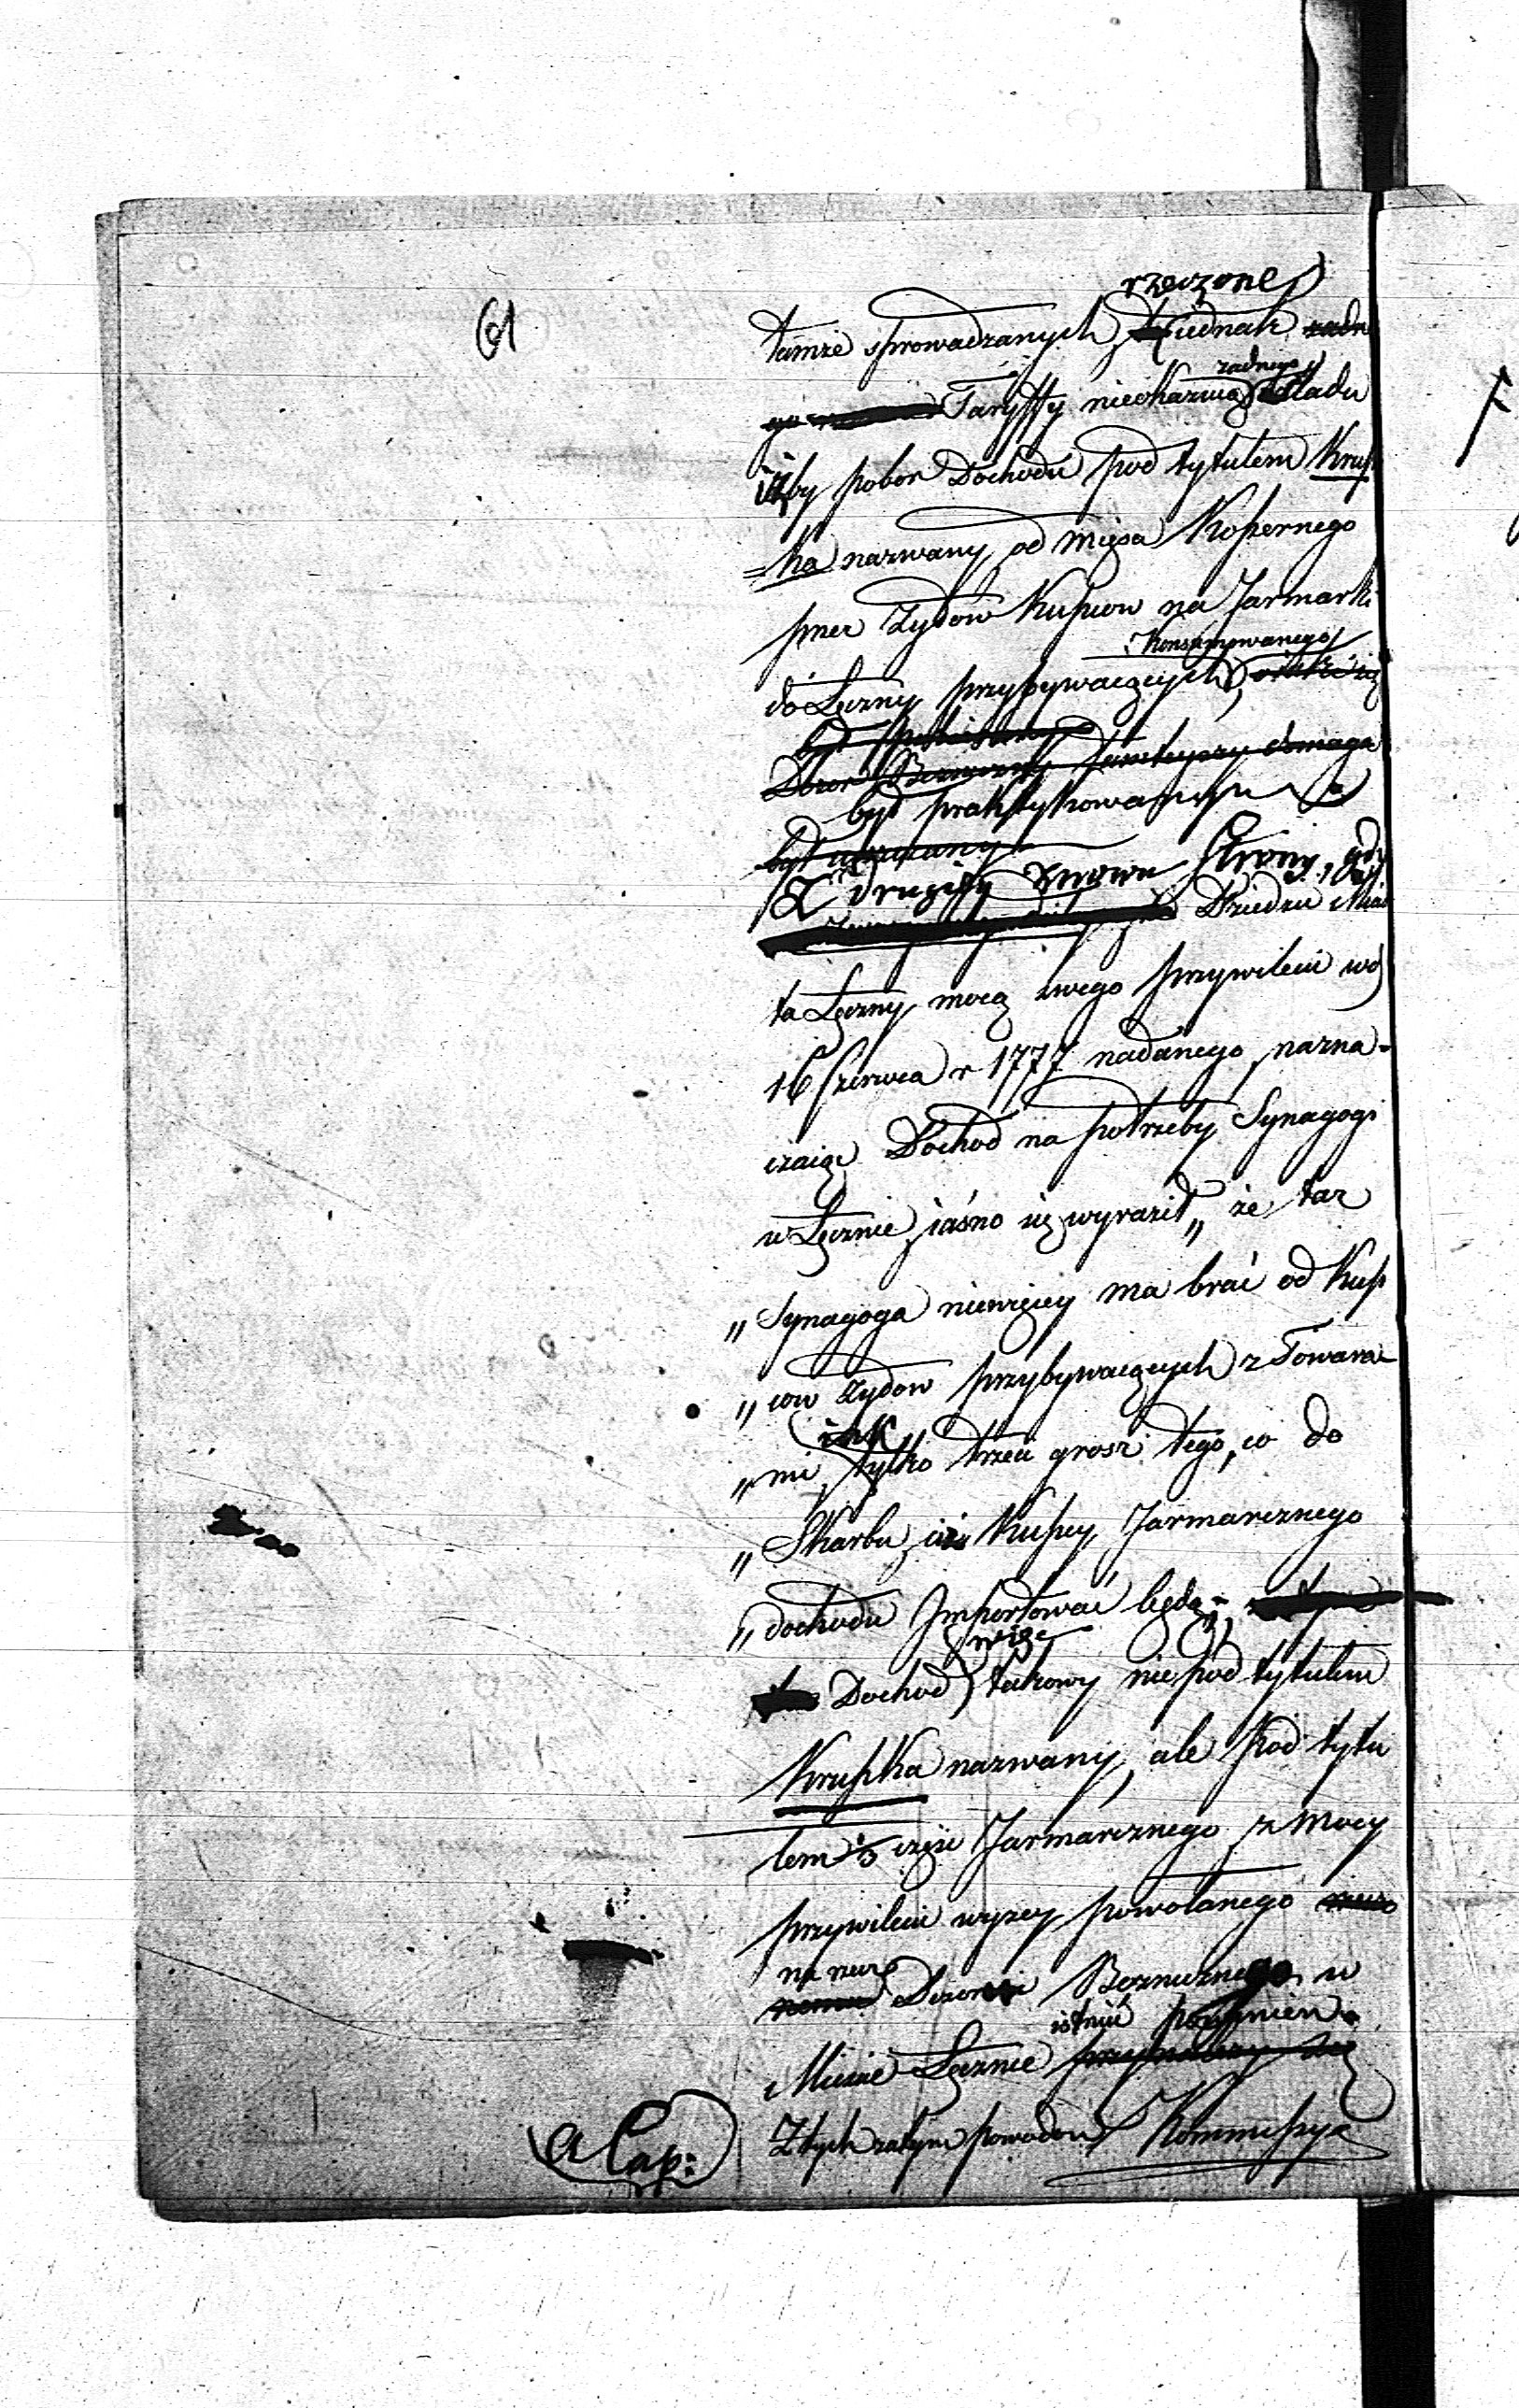 61
rzeczone
tamże sprowadzanych, iednak żadn
go Taryffy nieokazuią żadnego szladu
iżby pobor Dochodu pod tytułem Krup
=ka nazwany od mięsa Koszernego
przez Zydow Kupcow na Jarmarki
Konsumpwanego
do Łęczny przybywaiących,
Dozor Bozniczny tamteyszy domaga
był praktykowanym a
był
Z drugiey znowu Strony, gdy
Dziedzic Mias
ta Łęczny mocą swego przywileiu wd
16 Czerwca r 1777 nadanego, nazna-
czaiąc Dochod na potrzeby Synagogi
w Łęcznie jaśno się wyraził „ że taż
„ Synagoga niewięcey ma brać od Kup
„ cow Zydow przybywaiących z Towara
„ mi, iak tylko trzeci grosz tego, co do
„ Skarbu ciż Kupcy Jarmarcznego
„ dochodu Importować będą; „
Dochod więc takowy nie pod tytułem
Krupka nazwany, ale pod tytu
łem 1/3 części Jarmarcznego z mocy
przywileiu wyzey powołanego
na rzecz Dozoru Boznicznego w
istnieć powinien.
Mieście Łęcznie
Z tych zatym powodow Kommissya
a Cap: